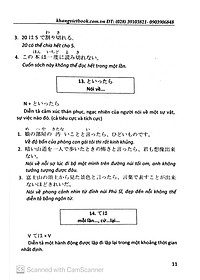 khangvietbook.com.vn ĐT: (028) 39103821- 0903906848
3. 20 は 5 で割り切れる。
20 có thể chia hết cho 5.
4. この本は一度に読み切れない。
Cuốn sách này không thể đọc hết trong một lần.
13. といったら
Nói về...
N + といったら
Diễn tả cảm xúc thán phục, ngạc nhiên của người nói về một sự vật, sự việc nào đó. (câu tiêu cực và tích cực)
1. 娘の部屋の汚いことと言ったら、ひどいものです。
Về độ bẩn của phòng con gái tôi thì rất kinh khủng.
2. 暗い山道を一人で歩いたときの怖さと言ったら、君も想像出来ない。
Nói về nỗi sợ lúc đi bộ một mình trên đường núi tối om, anh không tưởng tượng được đâu.
3. 富士山の頂上から見た景色と言ったら、言葉で表すことが出来ないほどきれいだ。
Nói về phong cảnh nhìn từ đỉnh núi Phú Sĩ, đẹp đến nỗi không thể diễn tả bằng lời.
14. ては
mỗi lần..., cứ...lại...
V ては + V
Diễn tả một hành động được lặp đi lặp lại trong một khoảng thời gian nhất định.
11
CS Scanned with CamScanner